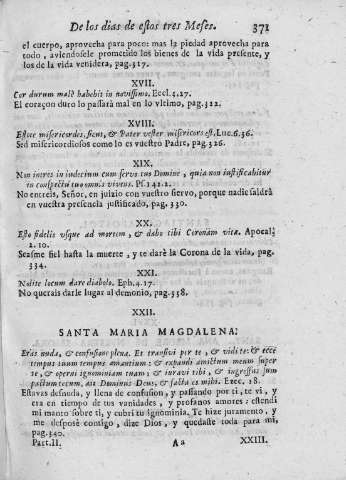 De los dias de estos tres Meses. 371
el cuerpo, aprovecha para poco: mas la piedad aprovecha para
todo, aviendosele prometido los bienes de la vida presente, y
los de la vida venidera, pag.317.
XVII.
Cor durum malè habebit in novissimo. Eccl.3.27.
El coraçon duro lo passarà mal en lo vltimo, pag.322.
XVIII.
Estote misericordes, sicut, & Pater vester misericors est. Luc.6.36.
Sed misericordiosos como lo es vuestro Padre, pag.326.
XIX.
Non intres in iudicium cum servo tuo Domine, quia non iustificabitur
in conspectu tuo omnis vivens. Ps.142.2.
No entreis, Señor, en juizio con vuestro siervo, porque nadie saldrà
en vuestra presencia justificado, pag.330.
XX.
Esto fidelis vsque ad mortem, & dabo tibi Coronam vitæ. Apocal.
2.10.
Seasme fiel hasta la muerte, y te darè la Corona de la vida, pag.
334.
XXI.
Nolite locum dare diabolo. Eph.4.17.
No querais darle lugar al demonio, pag.338.
XXII.
SANTA MARIA MAGDALENA:
Eras nuda, & confusione plena. Et transivi per te, & vidi te: & ecce
tempus tuum tempus amantium: & expandi amictum meum super
te, & operui ignominiam tuam; & iuravi tibi, & ingressus sum
pactum tecum, ait Dominus Deus, & facta es mihi. Ezec. 18.
Estavas desnuda, y llena de confusion, y passando por ti, te vi, y
era en tiempo de tus vanidades, y profanos amores: estendi
mi manto sobre ti, y cubri tu ignominia. Te hize juramento, y
me desposè contigo, dize Dios, y quedaste toda para mi,
pag.340.
Part.II. Aa XXIII.